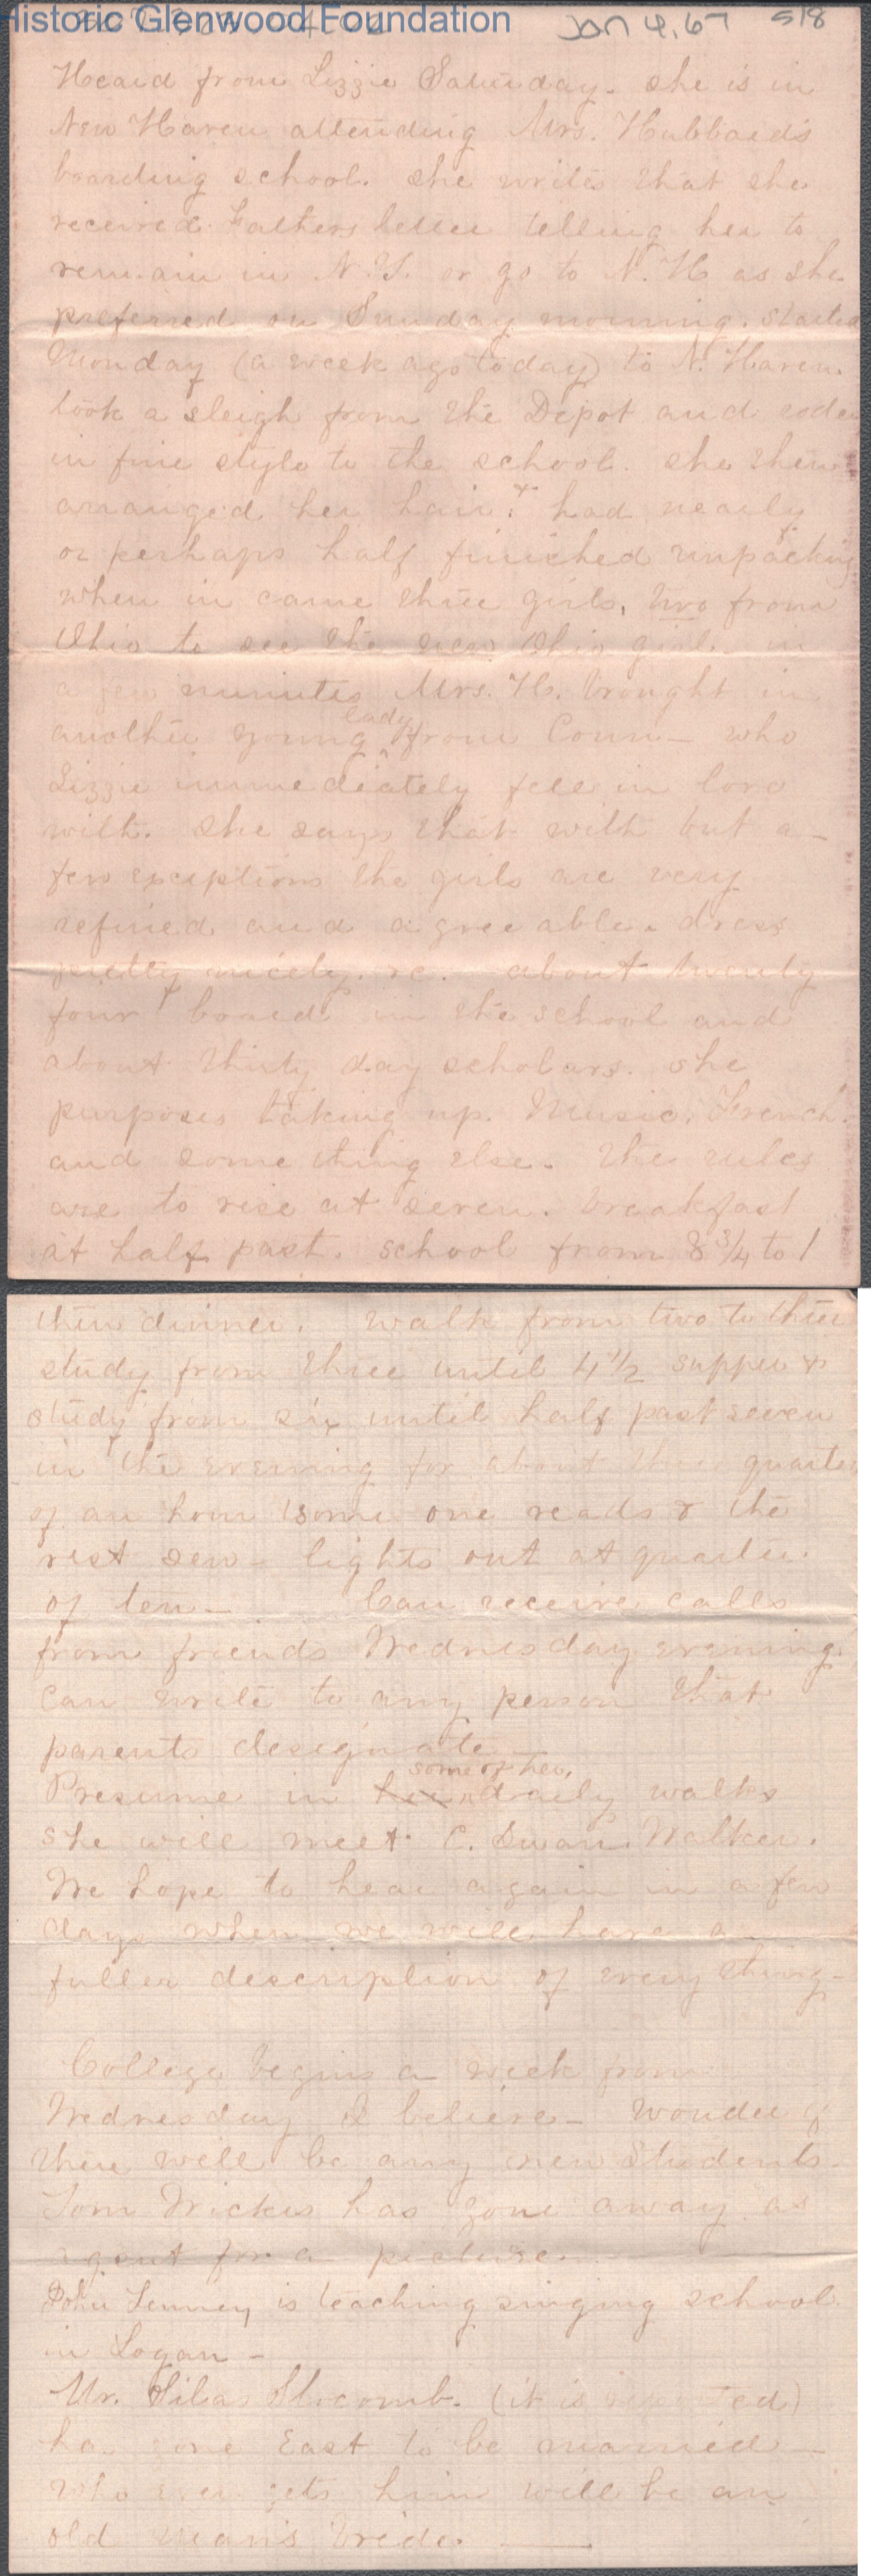 Historic Glenwood Foundation
Jan 4, 67 518
Heard from Lizzie Saturday. she is in
New Haven attending Mrs. Hubbards
boarding school. she writes that she
received Fathers letter telling her to
remain in N.Y. or go to N. H as she
preferred on Sunday morning. started
Monday (a week ago today) to N. Haven.
took a sleigh from the Depot and rode
in fine style to the school. she then
arranged her hair & had nearly
or perhaps half finished unpacking
when in came three girls, two from
Ohio to see the new Ohio girl - in
a few minutes Mrs. H. brought in
another young lady from Conn - who
Lizzie immediately fell in love
with. She says that with but a -
few exceptions the girls are very
refined and agreeable. dress
pretty nicely. &c. about twenty
four board in the school and
about thirty day scholars. she
purposes taking up. Music. French.
and some thing else. The rules
are to rise at seven. breakfast
at half past. school from 8 3/4 to 1
then dinner. walk from two to three
study from three until 4 1/2 supper &
study from six until half past seven
in the evening for about three quarters
of an hour some one reads & the
rest sew - lights out at quarter
of ten - Can receive calls
from friends Wednesday evening.
Can write to any person that
parents designate -
Presume in some of her daily walks
she will meet C. Swan Walker.
We hope to hear again in a few
days when we will have a
fuller description of every thing -
College begins a week from
Wednesday I believe - wonder if
there will be any new students.
Tom Wickes has gone away as
agent for a picture.
John Tenney is teaching singing school
in Logan -
Mr. Silas Slocomb. (it is reported)
has gone East to be married -
Who ever gets him will be an
old man's bride.